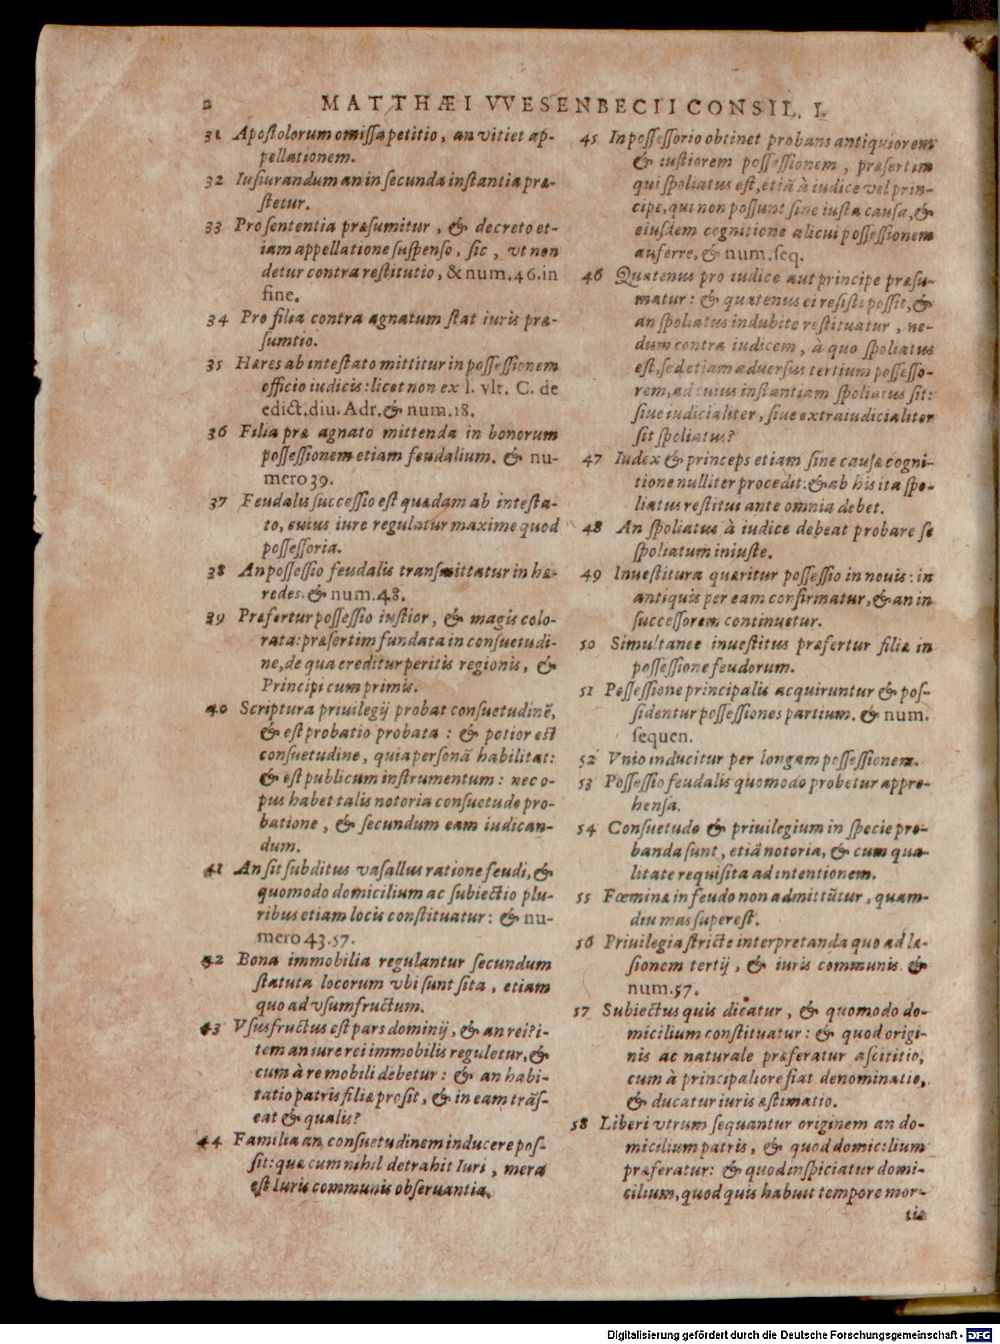 2 MATTHÆI VVESENBECII CONSIL. I.
31 Apostolorum omissa petitio, an vitiet ap-
pellationem.
32 Iusiurandum an in secunda instantia præ-
stetur.
33 Pro sententia præsumitur, & decreto et-
iam appellatione suspenso, sic, vt non
detur contra restitutio, & num. 46. in
fine.
34 Pro filia contra agnatum stat iuris præ-
sumtio.
35 Hæres ab intestato mittitur in possessionem
officio iudicis: licet non ex l. vlt. C. de
edict. diu. Adr. & num. 18.
36 Filia præ agnato mittenda in bonorum
possessionem etiam feudalium. & nu-
mero 39.
37 Feudalis successio est quædam ab intesta-
to, cuius iure regulatur maxime quod
possessoria.
38 An possessio feudalis transmittatur in hæ-
redes. & num. 48.
39 Præfertur possessio iustior, & magis colo-
rata: præsertim fundata in consuetudi-
ne, de qua creditur peritis regionis, &
Principi cum primis.
40 Scriptura priuilegij probat consuetudinē,
& est probatio probata: & potior est
consuetudine, quia personā habilitat:
& est publicum instrumentum: nec o-
pus habet talis notoria consuetudo pro-
batione, & secundum eam iudican-
dum.
41 An sit subditus vasallus ratione feudi, &
quomodo domicilium ac subiectio plu-
ribus etiam locis constituatur: & nu-
mero 43. 57.
42 Bona immobilia regulantur secundum
statuta locorum vbi sunt sita, etiam
quo ad vsumfructum.
43 Vsusfructus est pars dominij, & an rei? i-
tem an iure rei immobilis reguletur, &
cum à re mobili debetur: & an habi-
tatio patris filiæ prosit, & in eam trās-
eat & qualis?
44 Familia an consuetudinem inducere pos-
sit: quæ cum nihil detrahit Iuri, mera
est Iuris communis obseruantia.
45 In possessorio obtinet probans antiquiorem
& iustiorem possessionem, præsertim
qui spoliatus est, etiā à iudice vel prin-
cipe, qui non possunt sine iusta causa, &
eiusdem cognitione alicui possessionem
auferre, & num. seq.
46 Quatenus pro iudice aut principe præsu-
matur: & quatenus ei resisti possit, &
an spoliatus indubitè restituatur, ne-
dum contra iudicem, à quo spoliatus
est, sed etiam aduersus tertium possesso-
rem, ad cuius instantiam spoliatus sit:
siue iudicialiter, siue extraiudicialiter
sit spoliatus?
47 Iudex & princeps etiam sine causæ cogni-
tione nulliter procedit: & ab his ita spo-
liatus restitui ante omnia debet.
48 An spoliatus à iudice debeat probare se
spoliatum iniuste.
49 Inuestitura quæritur possessio in nouis: in
antiquis per eam confirmatur, & an in
successorem continuetur.
50 Simultanee inuestitus præfertur filiæ in
possessione feudorum.
51 Possessione principalis acquiruntur & pos-
sidentur possessiones partium. & num.
sequen.
52 Vnio inducitur per longam possessionem.
53 Possessio feudalis quomodo probetur appre-
hensa.
54 Consuetudo & priuilegium in specie pro-
banda sunt, etiā notoria, & cum qua-
litate requisita ad intentionem.
55 Fœminæ in feudo non admittūtur, quam-
diu mas superest.
56 Priuilegia strictè interpretanda quo ad læ-
sionem tertij, & iuris communis. &
num. 57.
57 Subiectus quis dicatur, & quomodo do-
micilium constituatur: & quod origi-
nis ac naturale præferatur ascititio,
cum à principaliore fiat denominatio,
& ducatur iuris æstimatio.
58 Liberi vtrum sequantur originem an do-
micilium patris, & quod domicilium
præferatur: & quod inspiciatur domi-
cilium, quod quis habuit tempore mor-
tis
Digitalisierung gefördert durch die Deutsche Forschungsgemeinschaft - DFG